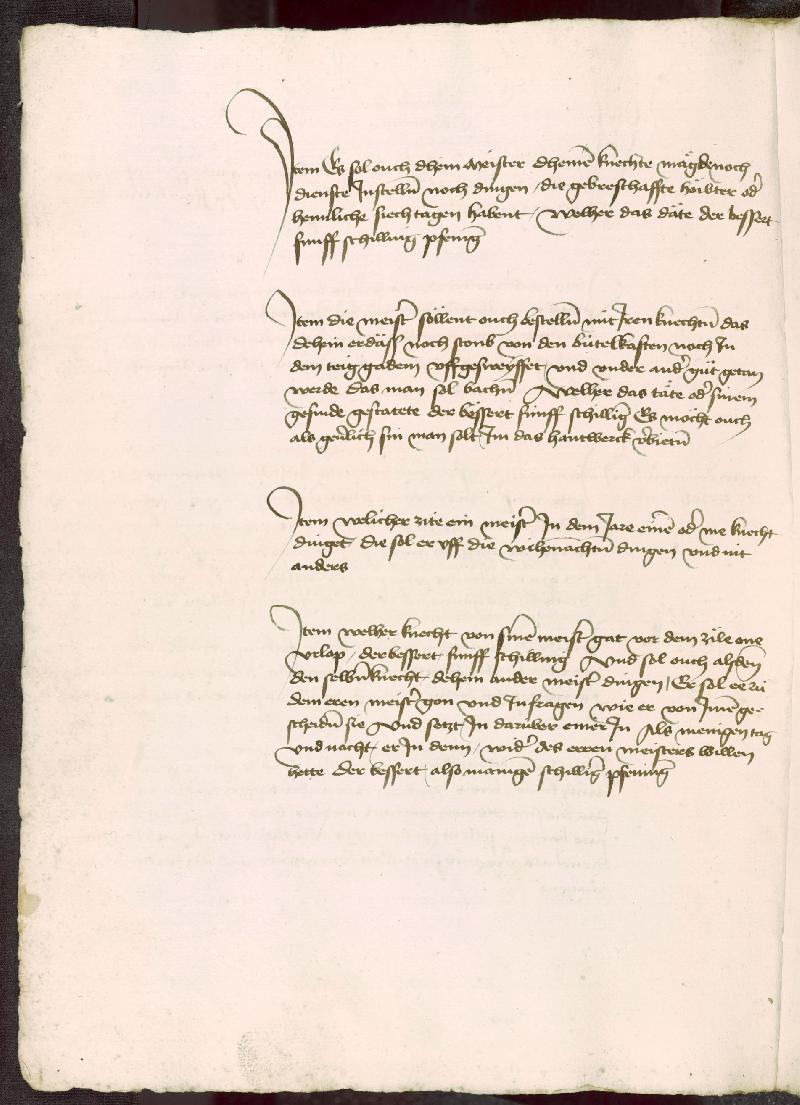 Item Es sol ouch dhein meister dheinē knechte mägde noch
dienste Instellū noch dingen / die gebresthaffte höibter od'
heimliche siechtagen habent / Welher das däte der bessert
fúnff schilling pfenīg
Item die meist' söllent ouch bestellū mit Iren knechtū das
dehein erdäss noch stoub von den bútelkasten noch In
dem teig gadem vffgesweyffet vnd vnder and' gůt getan
werde das man sol bachū Welher das täte od' sinem
gesinde gestatete der bessert fúnff schillig Es möcht ouch
als geu'lich sin man solt Im das hantwerck v'bietū
Item welicher zite ein meist' In dem Jare einē od' me knecht
dinget die sol er vff die wihenächtū dingen vnd nit
anders
Item welher knecht von sinē meist' gat vor dem zile one
vrlop / der bessert fúnff schilling Vnd sol ouch alsdēn
den selbū knecht dehein ander meist' dingen / Er sol ee zů
dem eren meist' gon vnd In fragen wie er von Imē ge-
scheidū sie Vnd setzt In darúber einer In Als menigen tag
vnd nacht er In denn / wid' des erren meisters willen
hette der bessert also manigē schillig pfenīg